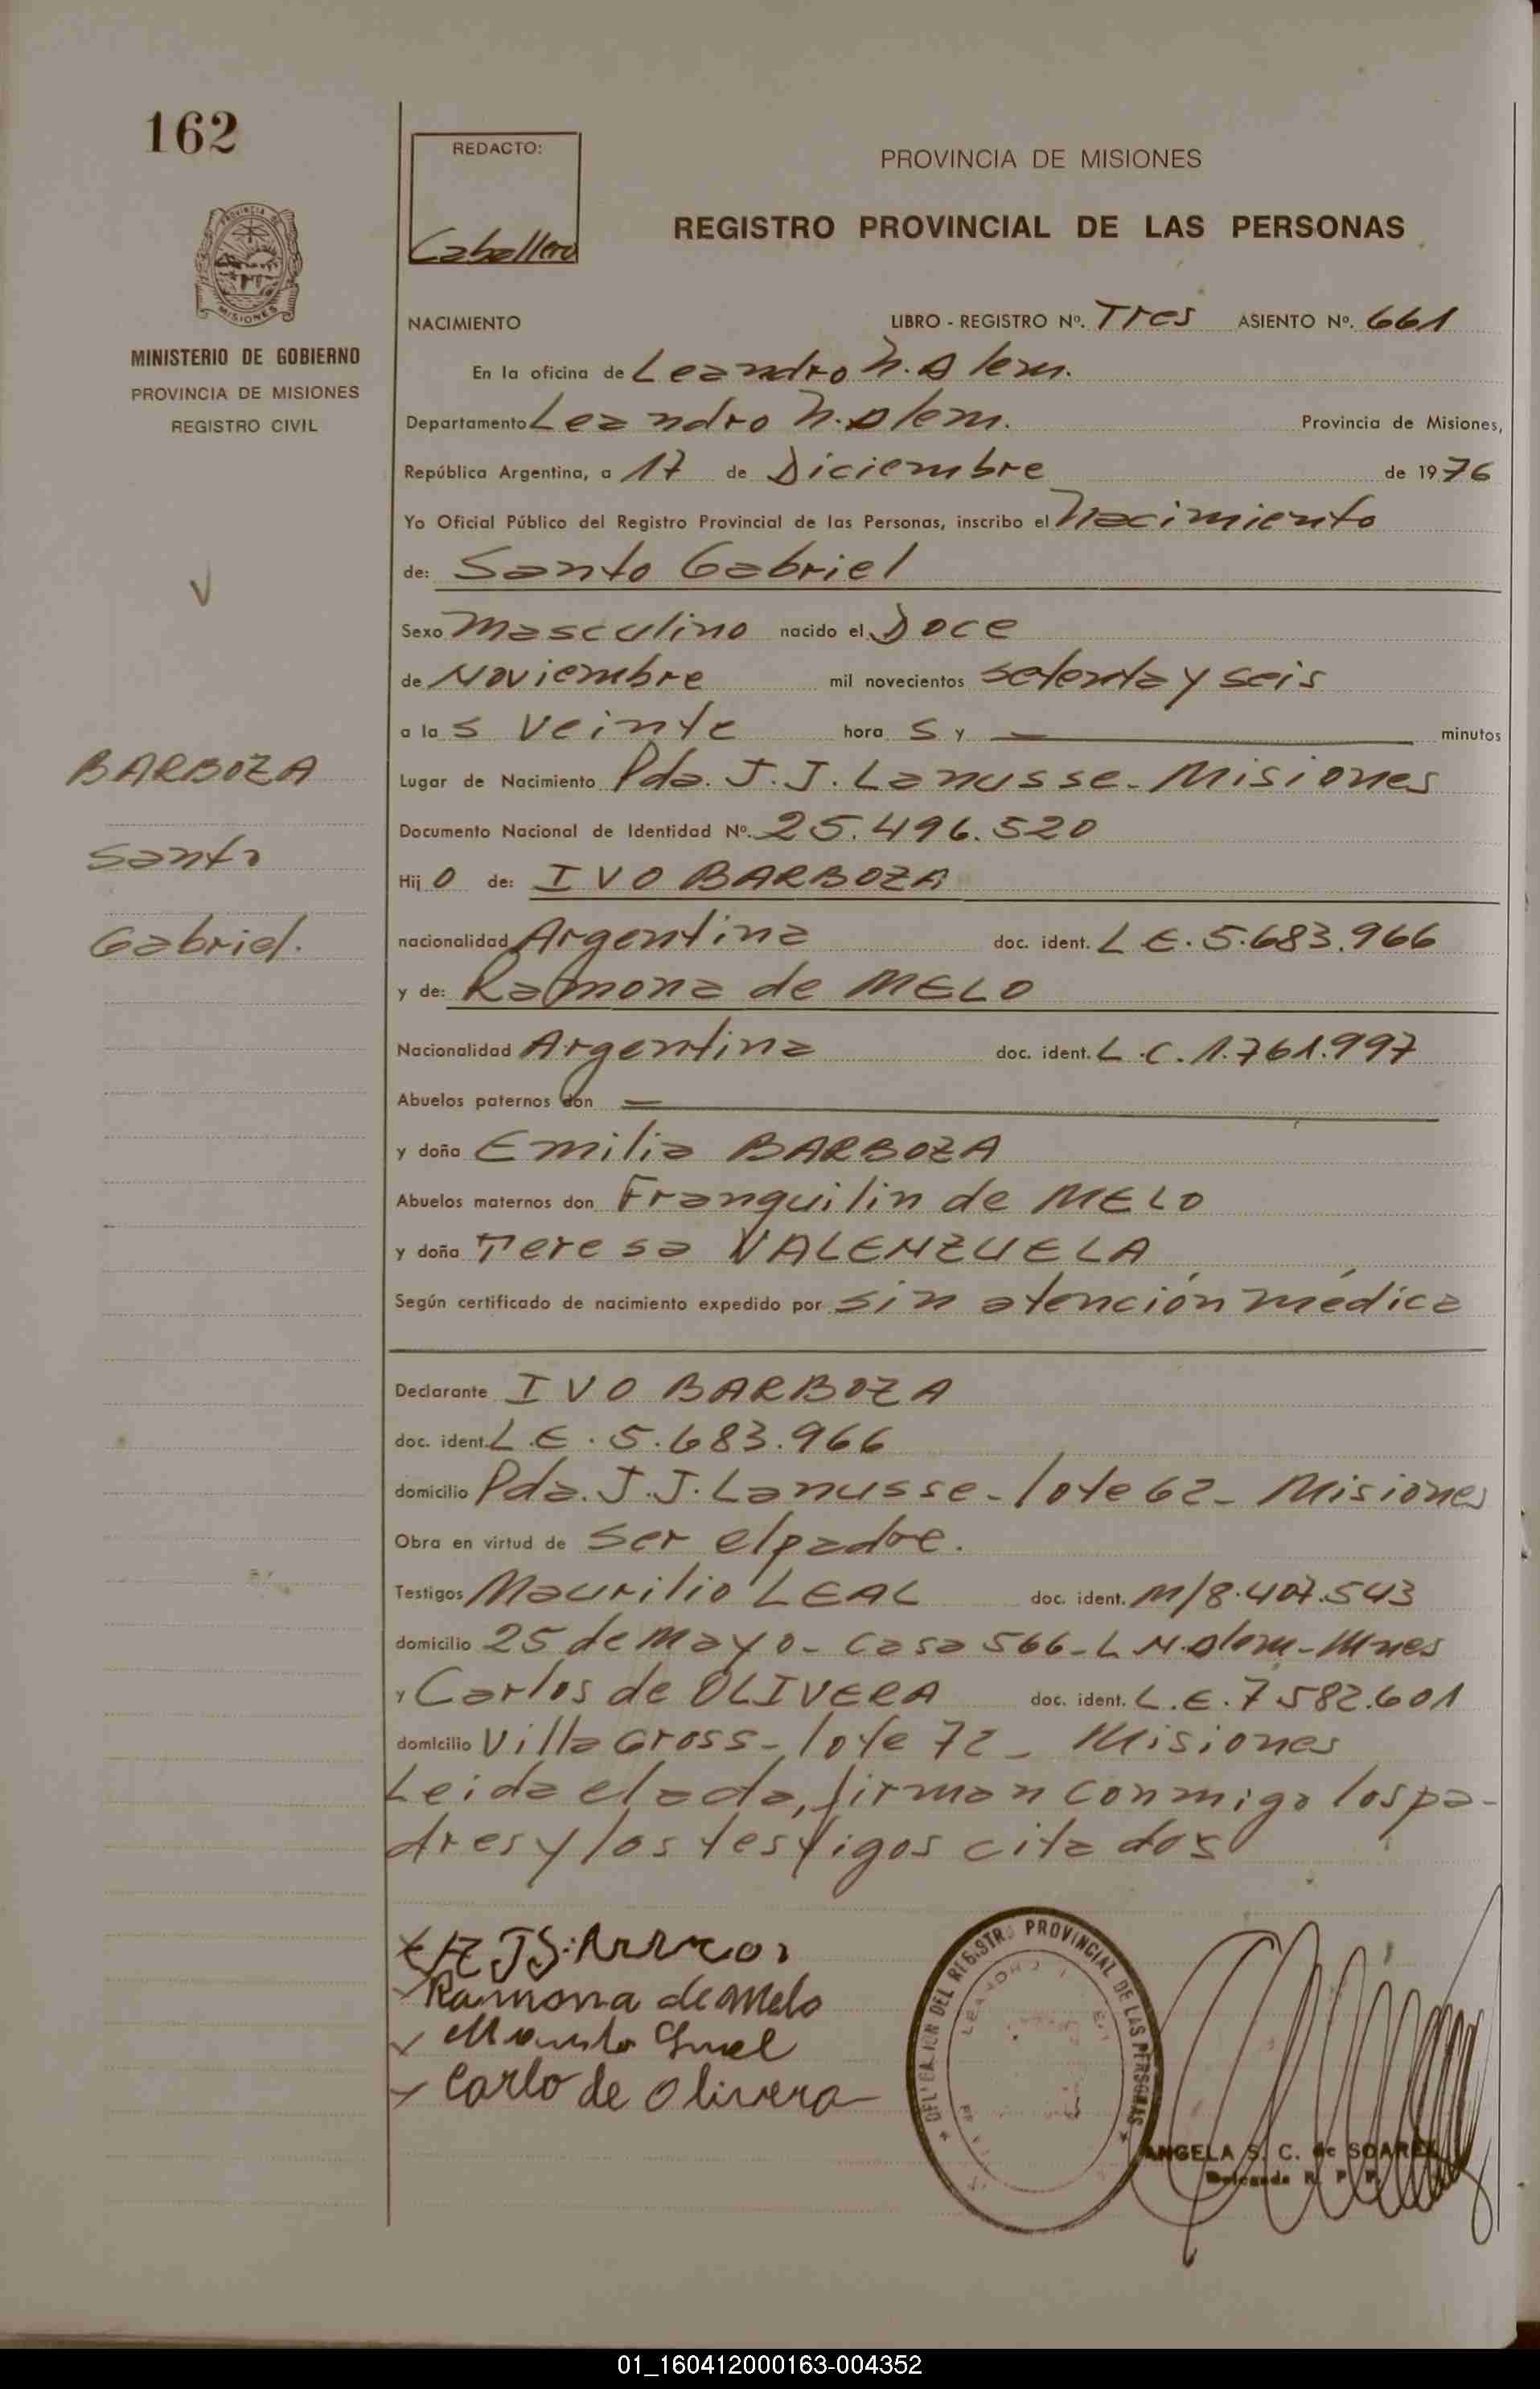 162
REDACTO:
Caballero
PROVINCIA DE MISIONES
REGISTRO PROVINCIAL DE LAS PERSONAS
MISIONES
MINISTERIO DE GOBIERNO
PROVINCIA DE MISIONES
REGISTRO CIVIL
NACIMIENTO LIBRO - REGISTRO Nº. Tres ASIENTO Nº. 661
En la oficina de Leandro N. Alem.
Departamento Leandro N. Alem. Provincia de Misiones,
República Argentina, a 17 de Diciembre de 1976
Yo Oficial Público del Registro Provincial de las Personas, inscribo el Nacimiento
de: Santo Gabriel
Sexo Masculino nacido el Doce
de Noviembre mil novecientos setenta y seis
a las veinte horas y — minutos
BARBOZA
Santo
Gabriel.
Lugar de Nacimiento Pda. J. J. Lanusse - Misiones
Documento Nacional de Identidad Nº. 25.496.520
Hijo de: IVO BARBOZA
nacionalidad Argentina doc. ident. L E. 5.683.966
y de: Ramona de MELO
Nacionalidad Argentina doc. ident. L.C. 1.761.997
Abuelos paternos don —
y doña Emilia BARBOZA
Abuelos maternos don Franquilin de MELO
y doña Teresa VALENZUELA
Según certificado de nacimiento expedido por sin atención médica
Declarante IVO BARBOZA
doc. ident. L.E. 5.683.966
domicilio Pda. J. J. Lanusse - lote 62 - Misiones
Obra en virtud de ser el padre.
Testigos Maurilio LEAL doc. ident. M/8.407.543
domicilio 25 de Mayo - Casa 566 - L N. Alem - Mnes
y Carlos de OLIVERA doc. ident. L.E. 7.582.601
domicilio Villa Gross - lote 72 - Misiones
Leida el acta, firman conmigo los pa-
dres y los testigos citados
Ramona de Melo
Carlo de Olivera
DELEGACION DEL REGISTRO PROVINCIAL DE LAS PERSONAS
ANGELA S. C. de SOAREZ
Delegada R. P. P.
01_160412000163-004352